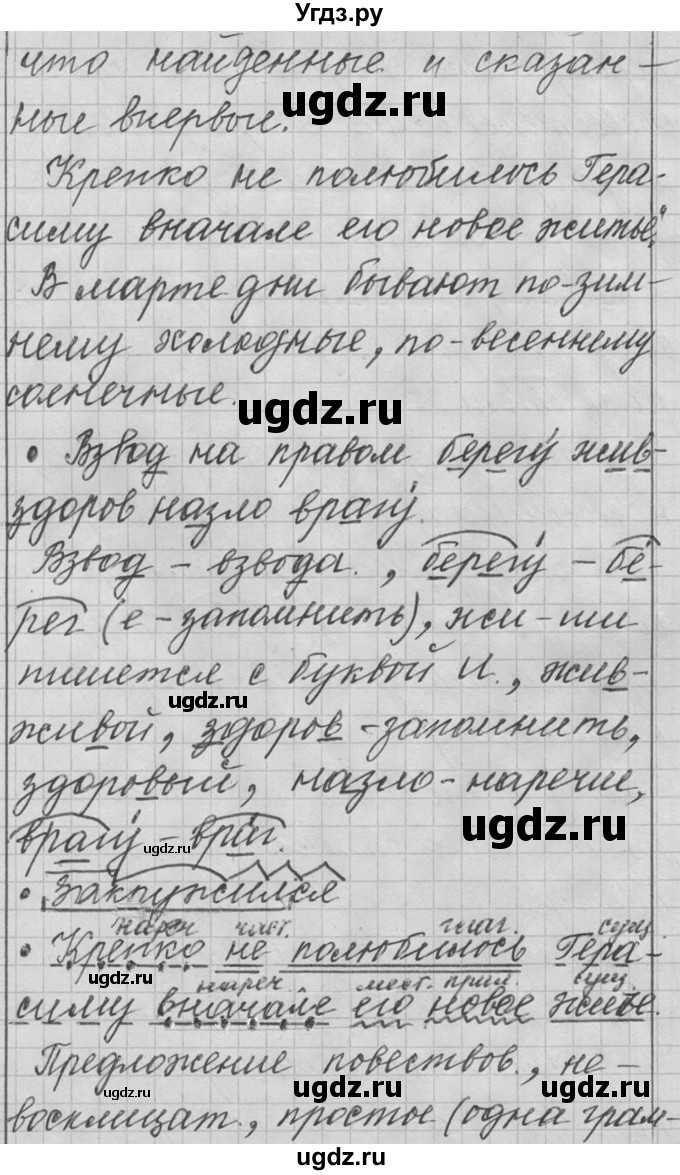 Угдз.ру
что найденные и сказан-
ные впервые.
ugdz.ru
Крепко не полюбилось Гера-
симу вначале его новое житьё."
В марте дни бывают по-зим-
нему холодные, по-весеннему
солнечные.
ugdz.ru
• Взвод на правом берегу́ жив-
здоров назло врагу́.
Взвод – взвода., берегу́ – бе́-
рег (е-запомнить), жи-ши
пишется с буквой И., жив-
ugdz.ru
живой, здоров-запомнить,
здоровый, назло-наречие,
врагу́ – враг.
ugdz.ru
ugdz.ru
• закружился
нареч част. глаг. сущ.
• Крепко не полюбилось Гера-
ugdz.ru
нареч. мест. прил. сущ.
симу вначале его новое житье.
Предложение повествов., не-
ugdz.ru
ugdz.ru
ugdz.ru
восклицат., простое (одна грам-
ugdz.ru